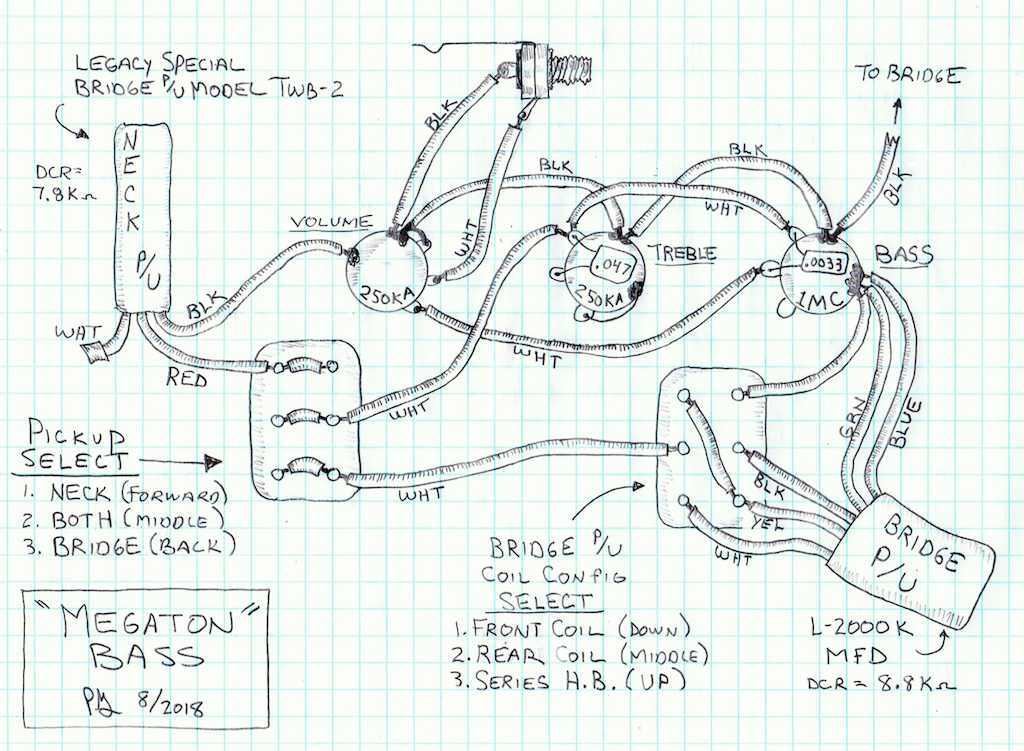 LEGACY SPECIAL
BRIDGE P/U MODEL TWB-2
DCR=
7.8KΩ
NECK P/U
WHT
BLK
RED
BLK
WHT
VOLUME
250KA
BLK
WHT
BLK
TREBLE
.047
250KA
WHT
BASS
.0033
1MC
TO BRIDGE
BLK
WHT
WHT
GRN
BLUE
BLK
YEL
WHT
BRIDGE
P/U
L-2000K
MFD
DCR = 8.8KΩ
PICKUP
SELECT
1. NECK (FORWARD)
2. BOTH (MIDDLE)
3. BRIDGE (BACK)
BRIDGE P/U
COIL CONFIG
SELECT
1. FRONT COIL (DOWN)
2. REAR COIL (MIDDLE)
3. SERIES H.B. (UP)
"MEGATON"
BASS
8/2018